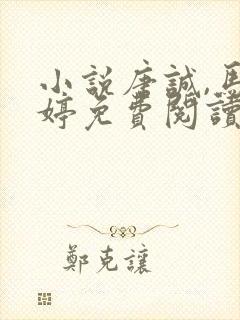 小説唐誠,馬
婷免費閱讀
鄭克讓